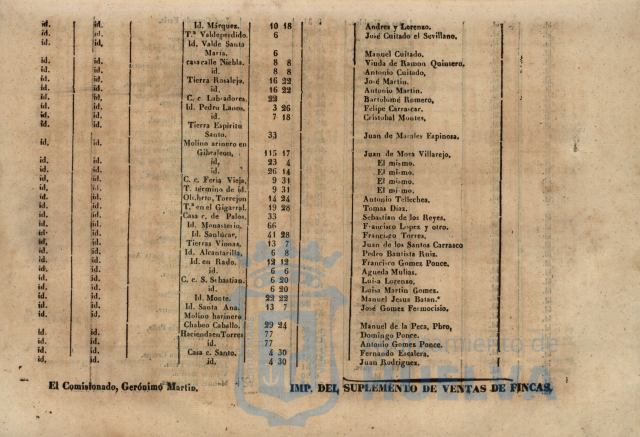 id. id. Id. Márquez. 10 18 Andres y Lorenzo.
id. id. T.ª Valdeperdido. 6 José Cuitado el Sevillano.
id. id. Id. Valde Santa
María. 6 Manuel Cuitado.
id. id. casa calle Niebla. 8 8 Viuda de Ramon Quintero.
id. id. id. 8 8 Antonio Cuitado,
id. id. Tierra Rosalejo. 16 22 José Martin.
id. id. id. 16 22 Antonio Martin.
id. id. C. c. Labradores. 22 Bartolomé Romero,
id. id. Id. Pedro Lasos. 3 26 Felipe Carrascar.
id. id. id. 7 18 Cristobal Montes,
id. id. Tierra Espiritu
Santo. 33 Juan de Morales Espinosa.
id. id. Molino arinero en
Gibraleon. 115 17 Juan de Mora Villarejo,
id. id. id, 23 4 El mismo.
id. id. id. 26 14 El mismo.
id. id. C. c. Feria Vieja, 9 31 El mismo.
id. id. T. término de id. 9 31 El mismo.
id. id. Torrejon 14 24 Antonio Tellechea.
id. id. T.ª en el Gigarral. 19 28 Tomas Diaz.
id. id. Casa c. de Palos. 33 Sebastian de los Reyes.
id. id. Id. Monasterio. 66 Francisco Lopez y otro.
id. id. Id. Sanlúcar. 41 28 Francisco Torres.
id. id. Tierras Visnas. 13 7 Juan de los Santos Carrasco
id. id. Id. Alcantarilla. 6 8 Pedro Bautista Ruiz.
id. id. Id. en Rado. 12 12 Francisco Gomez Ponce.
id. id. id. 6 6 Agueda Muñas.
id. id. C. c. S. Sebastian. 6 20 Luisa Lorenzo,
id. id. id. 6 20 Luisa Martin Gomez.
id. id. Id. Monte. 22 22 Manuel Jesus Batan.ª
id. id. Id. Santa Ana. 13 7 José Gomez Fermocisio.
id. id. Molino harinero
Chabeo Caballo. 29 24 Manuel de la Peca, Pbro,
id. id. Hacienda en Torres 77 Domingo Ponce.
id. id. id. 77 Antonio Gomez Ponce.
id. id. Casa c. Santo. 4 30 Fernando Escalera.
id. id. id. 4 30 Juan Rodriguez.
El Comisionado, Gerónimo Martin. IMP. DEL SUPLEMENTO DE VENTAS DE FINCAS,
HUELVA